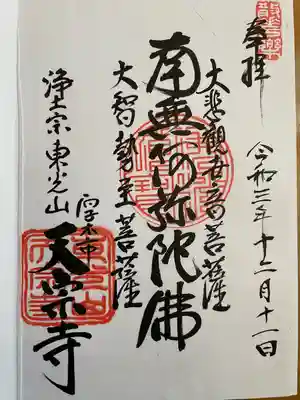 奉拝
令和三年十二月十一日
大悲観世音菩薩
南無阿弥陀佛
大智勢至菩薩
厚木市
浄土宗東光山
天宗寺